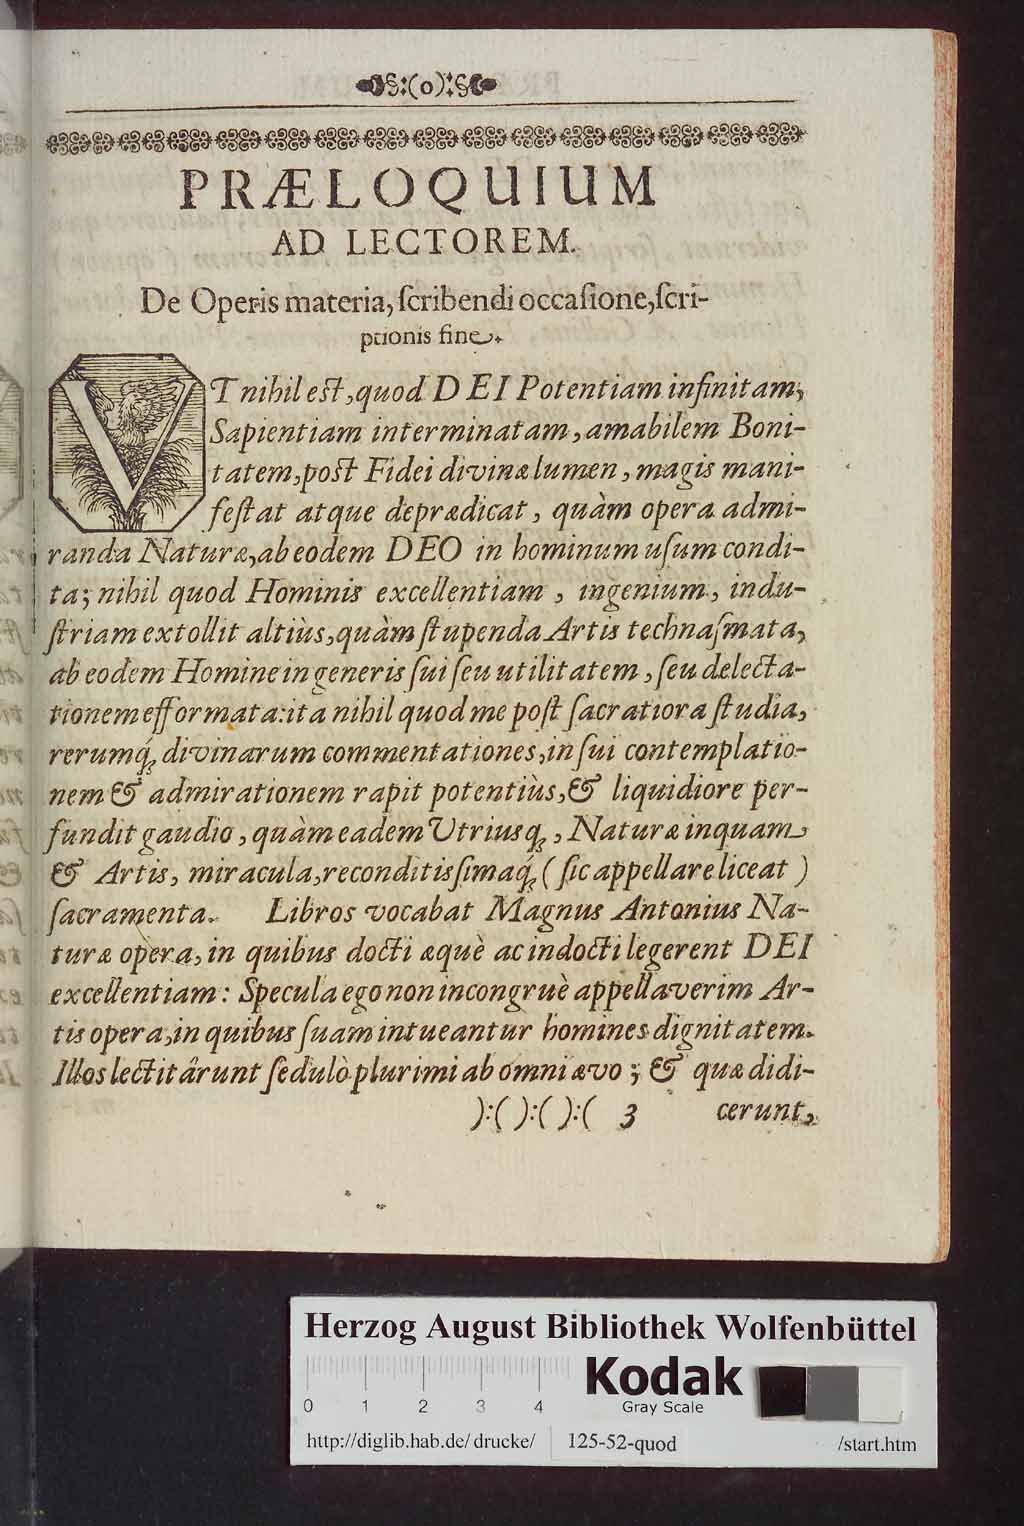 §:(o):§
PRÆLOQUIUM
AD LECTOREM.
De Operis materia, ſcribendi occaſione, ſcri-
ptionis fine.
VT nihil eſt, quod DEI Potentiam infinitam,
Sapientiam interminatam, amabilem Boni-
tatem, poſt Fidei divinæ lumen, magis mani-
feſtat atque deprædicat, quàm opera admi-
randa Naturæ, ab eodem DEO in hominum uſum condi-
ta; nihil quod Hominis excellentiam, ingenium, indu-
ſtriam extollit altiùs, quàm ſtupenda Artis technaſmata,
ab eodem Homine in generis ſui ſeu utilitatem, ſeu delecta-
tionem efformata: ita nihil quod me poſt ſacratiora ſtudia,
rerumq́; divinarum commentationes, in ſui contemplatio-
nem & admirationem rapit potentiùs, & liquidiore per-
fundit gaudio, quàm eadem Utriusq;, Naturæ inquam
& Artis, miracula, reconditisſimaq́; (ſic appellare liceat)
ſacramenta. Libros vocabat Magnus Antonius Na-
turæ opera, in quibus docti æquè ac indocti legerent DEI
excellentiam: Specula ego non incongruè appellaverim Ar-
tis opera, in quibus ſuam intueantur homines dignitatem.
Illos lectitârunt ſedulò plurimi ab omni ævo; & quæ didi-
):( ):( ):( 3 cerunt,
Herzog August Bibliothek Wolfenbüttel
0 1 2 3 4
Kodak
Gray Scale
http://diglib.hab.de/drucke/ 125-52-quod /start.htm